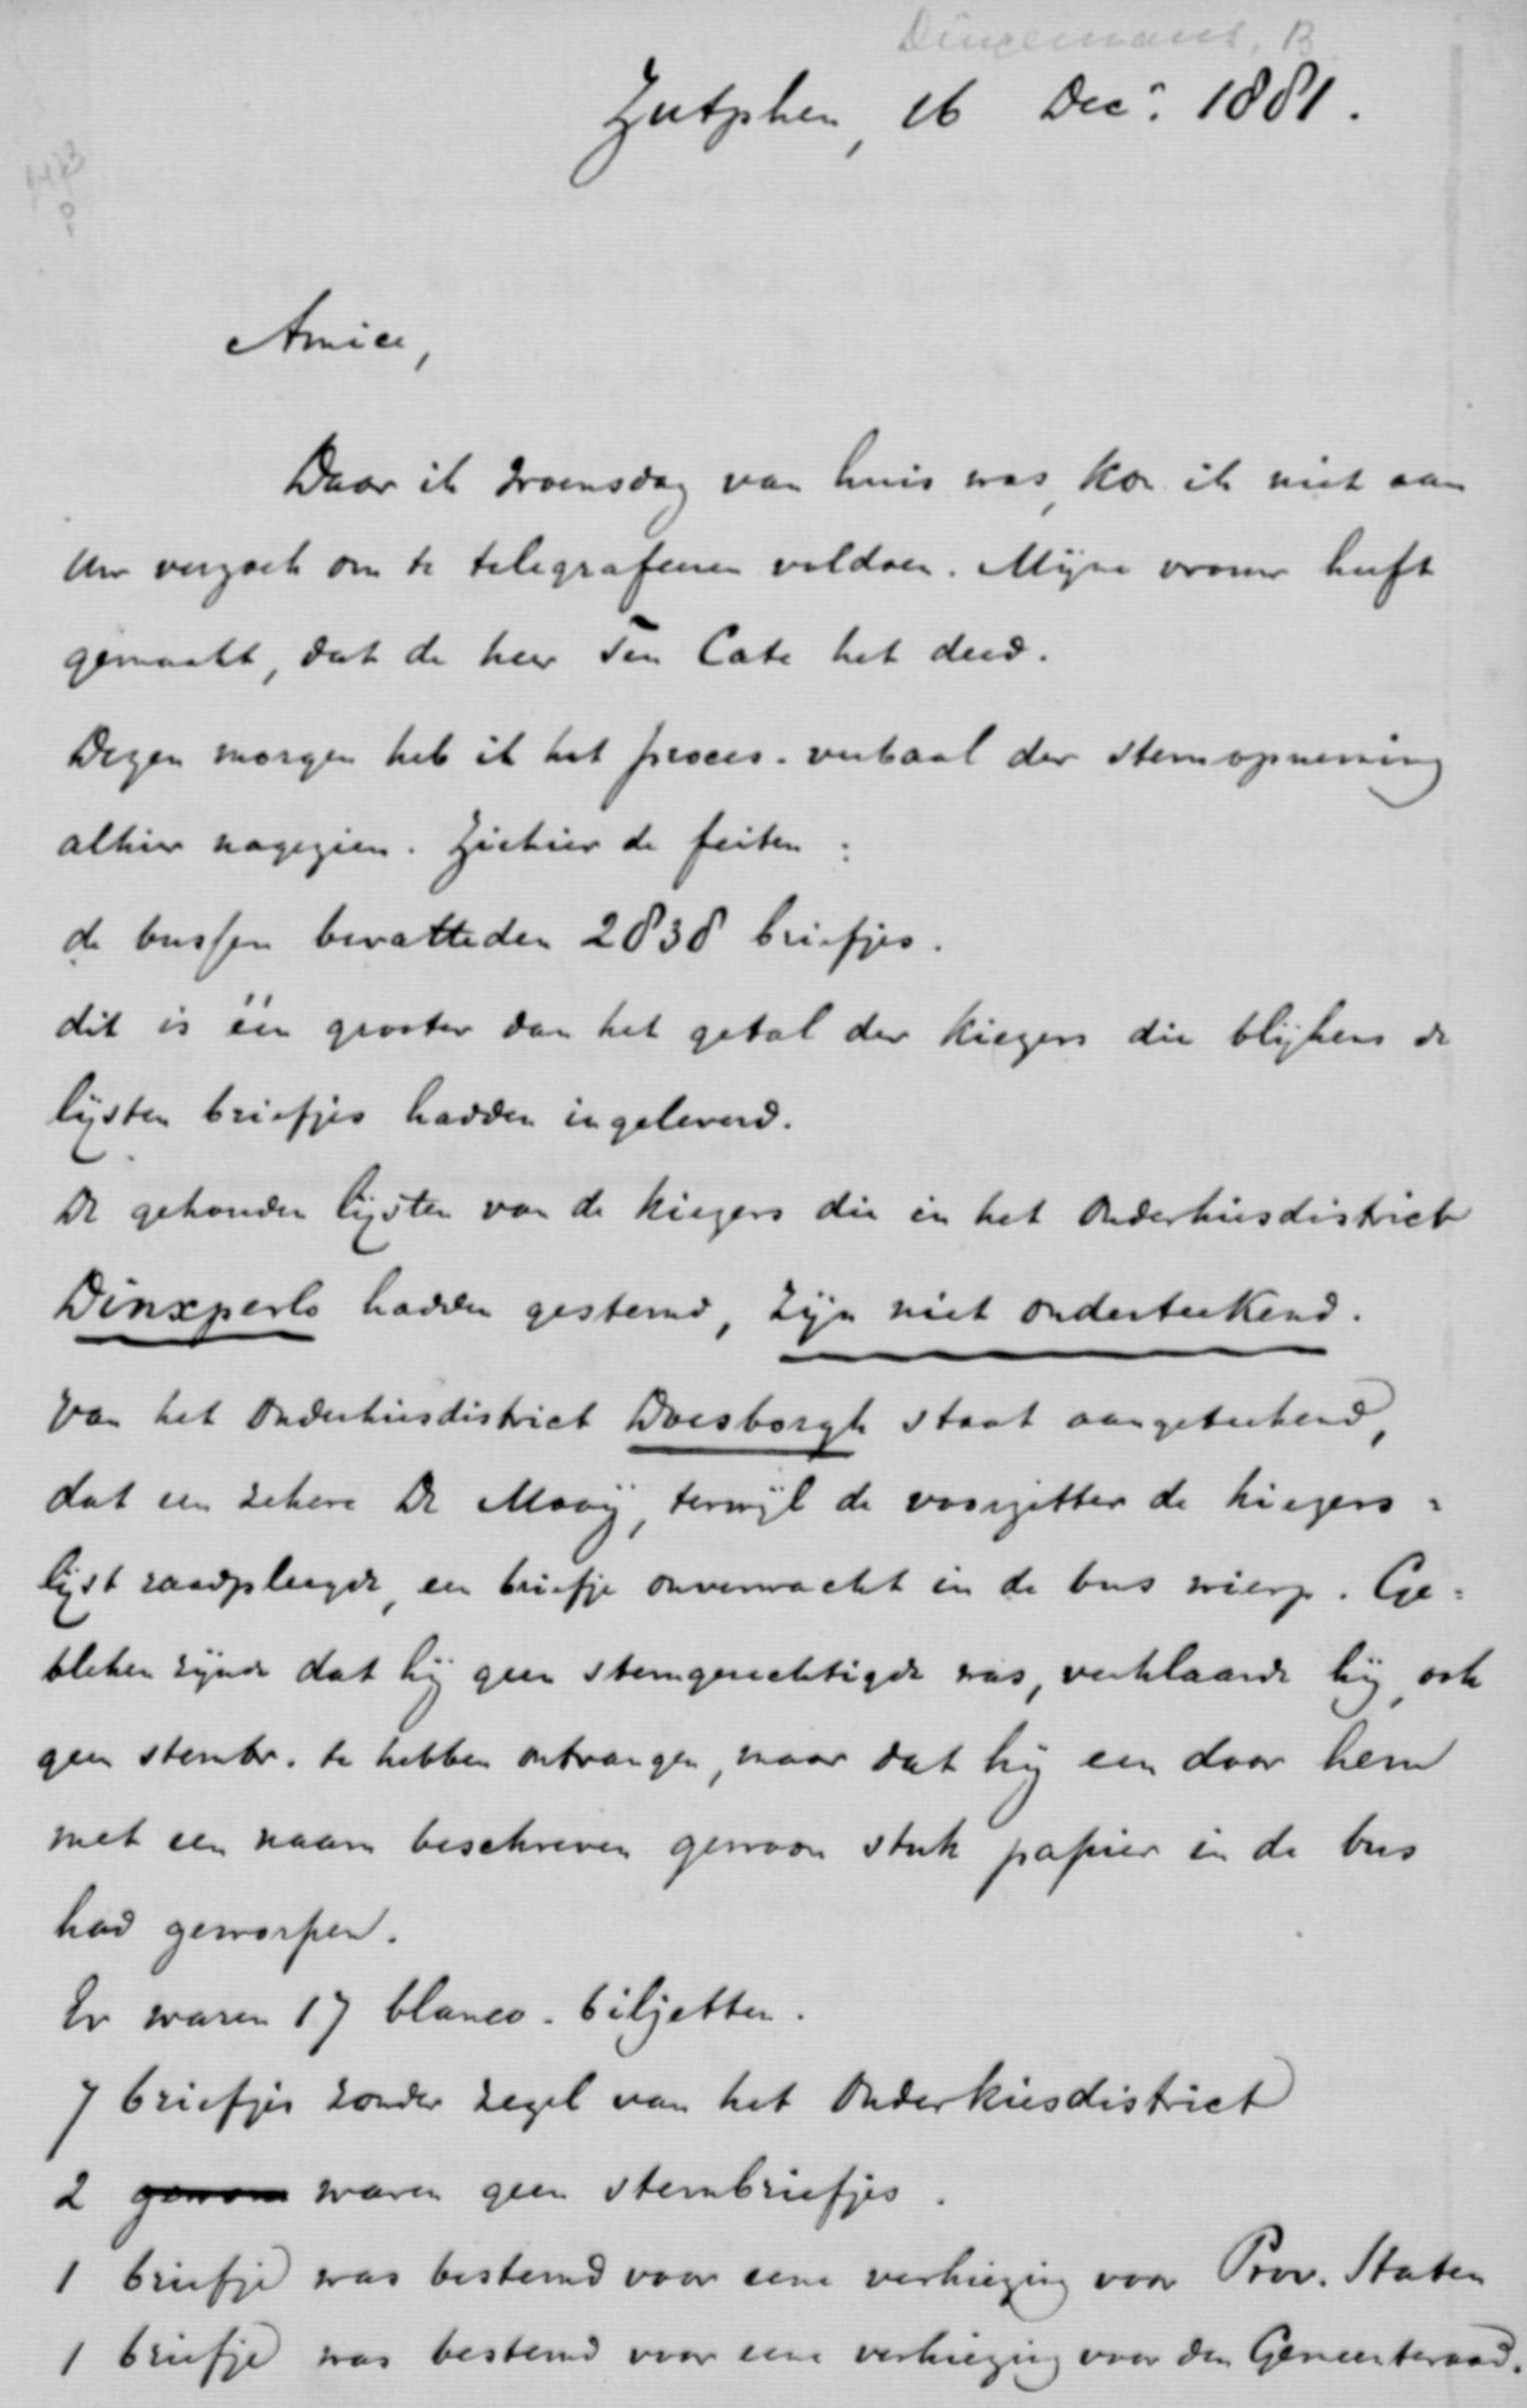 Dingemans, B
Zutphen, 16 Dec. 1881.
Amice,
Daar ik Woensdag van huis was, kon ik niet aan
Uw verzoek om te telegrafeeren voldoen. Mijne vrouw heeft
gemaakt, dat de heer Ten Cate het deed.
Dezen morgen heb ik het proces-verbaal der stemopneming
alhier nagezien. Ziehier de feiten:
de bussen bevatteden 2838 briefjes.
dit is één grooter dan het getal der kiezers die blijkens de
lijsten briefjes hadden ingeleverd.
De gehouden lijsten van de kiezers die in het Onderkiesdistrict
Dinxperlo hadden gestemd, zijn niet onderteekend.
Van het Onderkiesdistrict Doesborgh staat aangeteekend,
dat een zekere De Mooij, terwijl de voorzitter de kiezers=
lijst raadpleegde, een briefje onverwacht in de bus wierp. Ge=
bleken zijnde dat hij geen stemgerechtigde was, verklaarde hij, ook
geen stembr. te hebben ontvangen, maar dat hij een door hem
met een naam beschreven gewoon stuk papier in de bus
had geworpen.
Er waren 17 blanco-biljetten.
7 briefjes zonder zegel van het Onderkiesdistrict
2 gewone waren geen stembriefjes.
1 briefje was bestemd voor eene verkiezing voor Prov. Staten
1 briefje was bestemd voor eene verkiezing voor den Gemeenteraad.